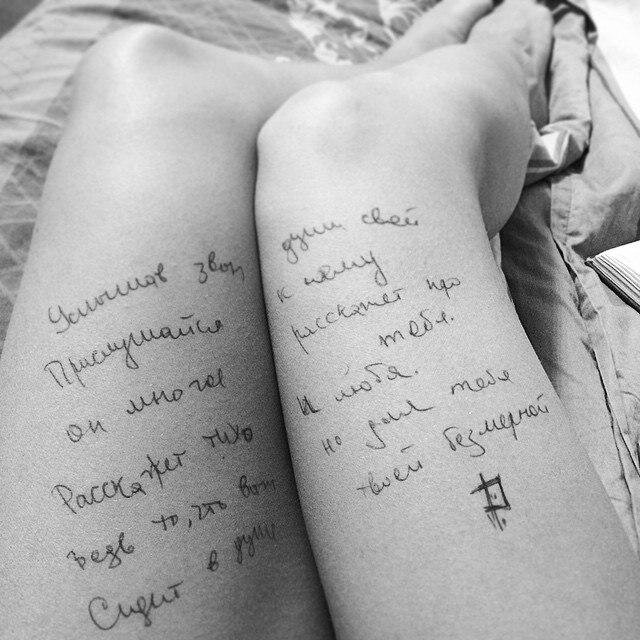 Услышав звон души своей
Прислушайся к нему
он многое расскажет про
тебя.
Расскажет тихо И любя.
ведь то, что вот но тебе
Сидит в душе твоей безмерной